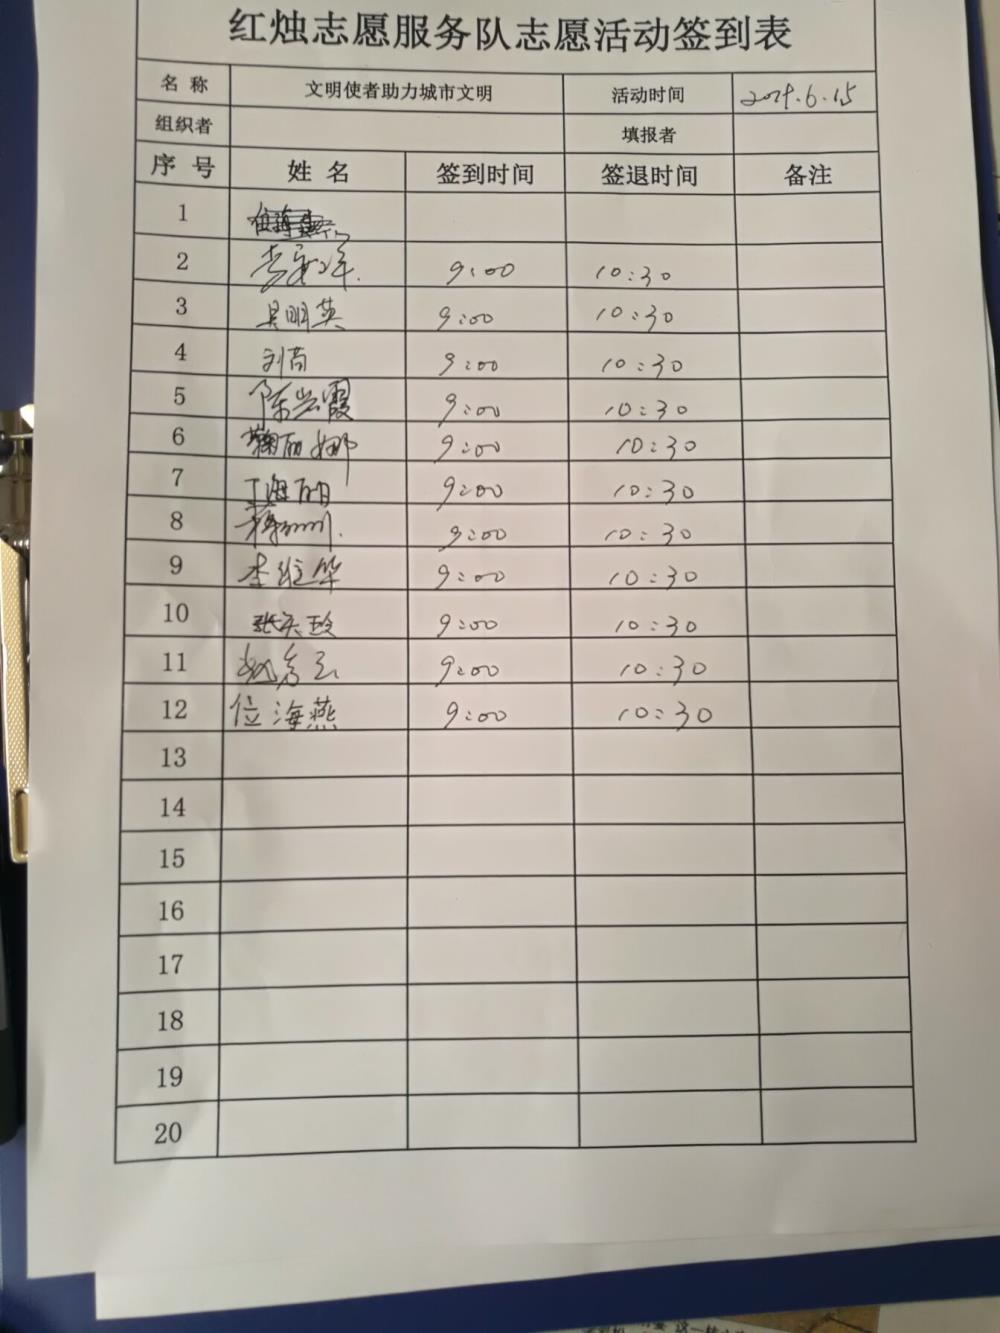 红烛志愿服务队志愿活动签到表
名 称 文明使者助力城市文明 活动时间
组织者 填报者
序 号 姓 名 签到时间 签退时间 备注
1
2 9:00 10:30
3 吴明英 9:00 10:30
4 9:00 10:30
5 陈兴霞 9:00 10:30
6 鞠丽娜 9:00 10:30
7 丁海丽 9:00 10:30
8 9:00 10:30
9 李继华 9:00 10:30
10 9:00 10:30
11 9:00 10:30
12 位海燕 9:00 10:30
13
14
15
16
17
18
19
20